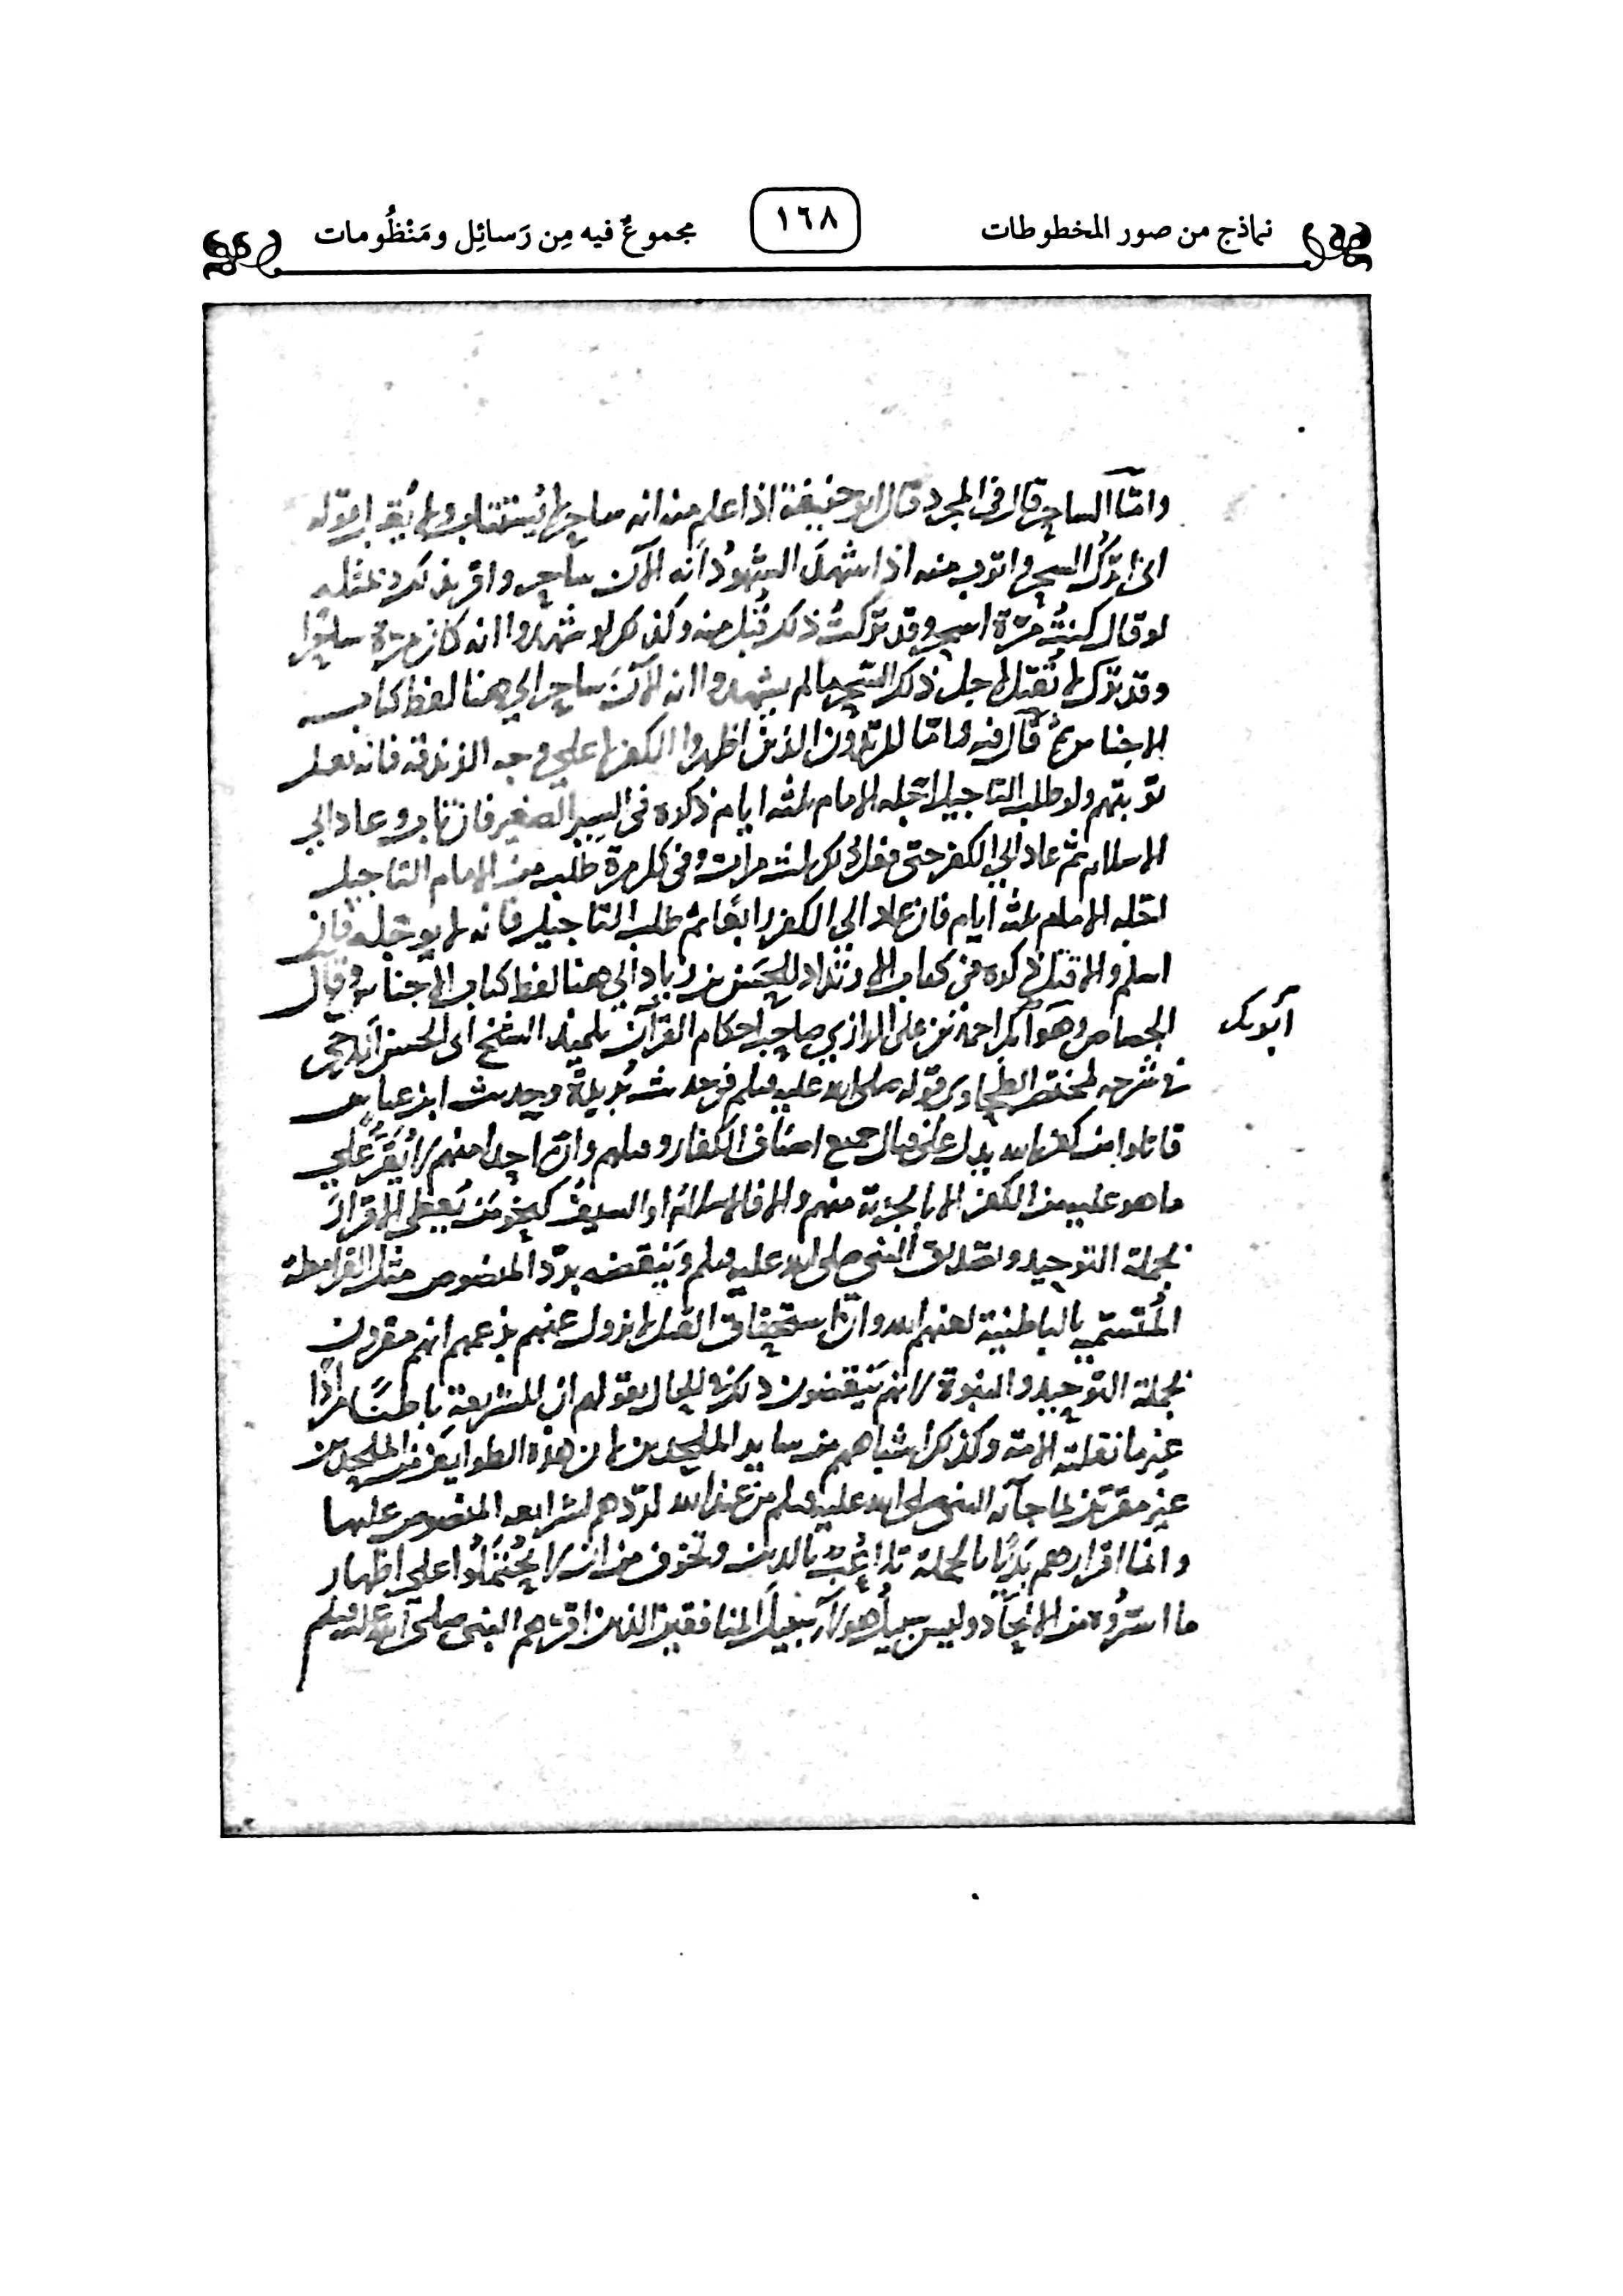 نماذج من صور المخطوطات
١٦٨
مجموعٌ فيه مِن رَسائِل ومَنْظُومات
وامّا الساحر قال فى المجرد قال ابو حنيفة اذا علم منه انه ساحر لا يُستتاب ولا يُقبل قوله
انى اترك السحر واتوب منه اذا شهدَ الشهودُ انه الآن ساحر واقر بذلك
لو قال كنتُ مرّة اسحر وقد تركتُ ذلك قُبل منه وكذلك لو شهدوا انه كان مرّة ساحرًا
وقد ترك لا يُقتل لاجل ذلك السّحر ما لم يشهدوا انه الآنَ ساحر الى هنا لفظ كتاب
الاجناس ثم قال فيه واما المرتدون الذين اظهروا الكفر لا على وجه الزندقة فانه نقبل
توبتهم ولو طلب التاجيل اجله الامام ثلثه ايام ذكره فى السِير الصغير فان تاب وعاد الى
الاسلام ثم عاد الى الكفر حتى فعل ذلك ثلث مرات وفى كل مرة طلب من الامام التاجيل
اجله الامام ثلثه ايام فان عاد الى الكفر رابعًا ثم طلب التاجيل فانه لا يوجله فان
اسلم والا قتل ذكره فى كتاب الارتداد للحسن بن زياد الى هنا لفظ كتاب الاجناس وقال
ابو بكر
الجصاص وهو ابو بكر احمد بن على الرازي صاحب احكام القرآن تلميذ الشيخ ابى الحسن الكرخى
فى شرحه لمختصر الطحاوى قوله صلى الله عليه وسلم فى حديث بُريدة وحديث ابن عباس
قاتلوا من كفر بالله يدل على قتال جميع اصناف الكفار وقتلهم وان احدا منهم لا يُقَرُّ على
ما هو عليه من الكفر الا بالجزية منهم والا فالاسلامُ او السيفُ كنحو مَن يُعطى الاقرارَ
بجملة التوحيد وتصديق النبى صلى الله عليه وسلم ويَنقضه بردّ النصوص مثل القرامطة
المُتسمّى بالباطنية لعنهم الله وان استحقاق القتل لا يزول عنهم بزعمهم انهم مقرون
بجملة التوحيد والنبوة لانهم يَنقضون ذلك فى الحال بقولهم ان للشريعة باطنًا مرادًا
غير ما نقلته الامة وكذلك اشباههم من ساير الملحدين لان هذه الطوايف من الملحدين
غير مقرين بما جآء به النبى صلى الله عليه وسلم من عند الله لردّهم لشرايعه المنصوص عليها
وانما اقرارهم بالجملة تلاعُبٌ بالدين وتخوف من ان لا
ما استرُوه من الالحاد وليس سبيل هولآء سبيل المنافقين الذين اقرّهم النبى صلى الله عليه وسلم